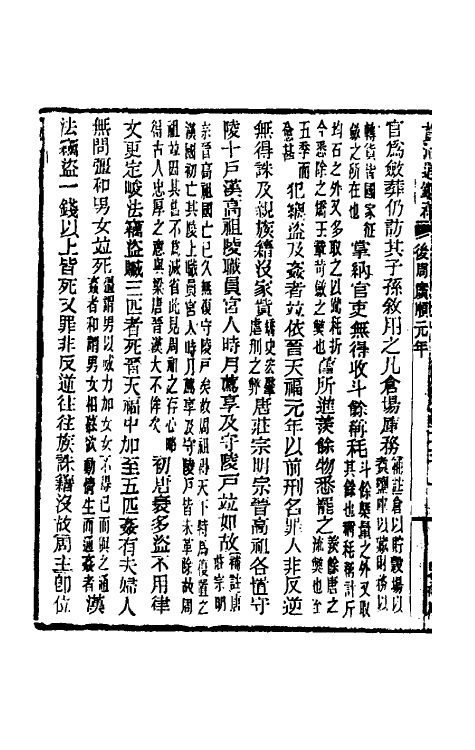 後周廣順元年
官爲斂葬仍訪其子孫敘用之凡倉場庫務補註倉以貯穀場以煑鹽庫以藏財務以
轉貨皆國家征斂之所在也掌納官吏無得收斗餘稱耗斗餘槩量之外又取其餘也稱耗稱計斤
均石之外又多取之以備耗折今悉除之矯王章苛斂之弊也舊所進羨餘物悉罷之羨餘唐之流弊也至
五季而愈甚犯竊盜及姦者竝依晉天福元年以前刑名罪人非反逆
無得誅及親族籍沒家貲矯史弘肇虐刑之弊唐莊宗明宗晉高祖各置守
陵十戶漢高祖陵職員宮人時月薦享及守陵戶竝如故補註唐莊宗明
宗晉高祖國亡已久無復守陵戶矣故周祖得天下時爲復置之漢國初亡其陵上職員宮人時月薦享及守陵戶皆未革除故周
祖竝因其舊不爲減省此見周祖之存心略得古人忠厚之意與梁唐晉漢大不侔矣初唐衰多盜不用律
文更定峻法竊盜贓三匹者死晉天福中加至五匹姦有夫婦人
無問彊和男女竝死彊謂男以威力加女女不得已而與之通姦者和謂男女相慕欲動情生而通姦者漢
法竊盜一錢以上皆死又罪非反逆往往族誅籍沒故周主卽位